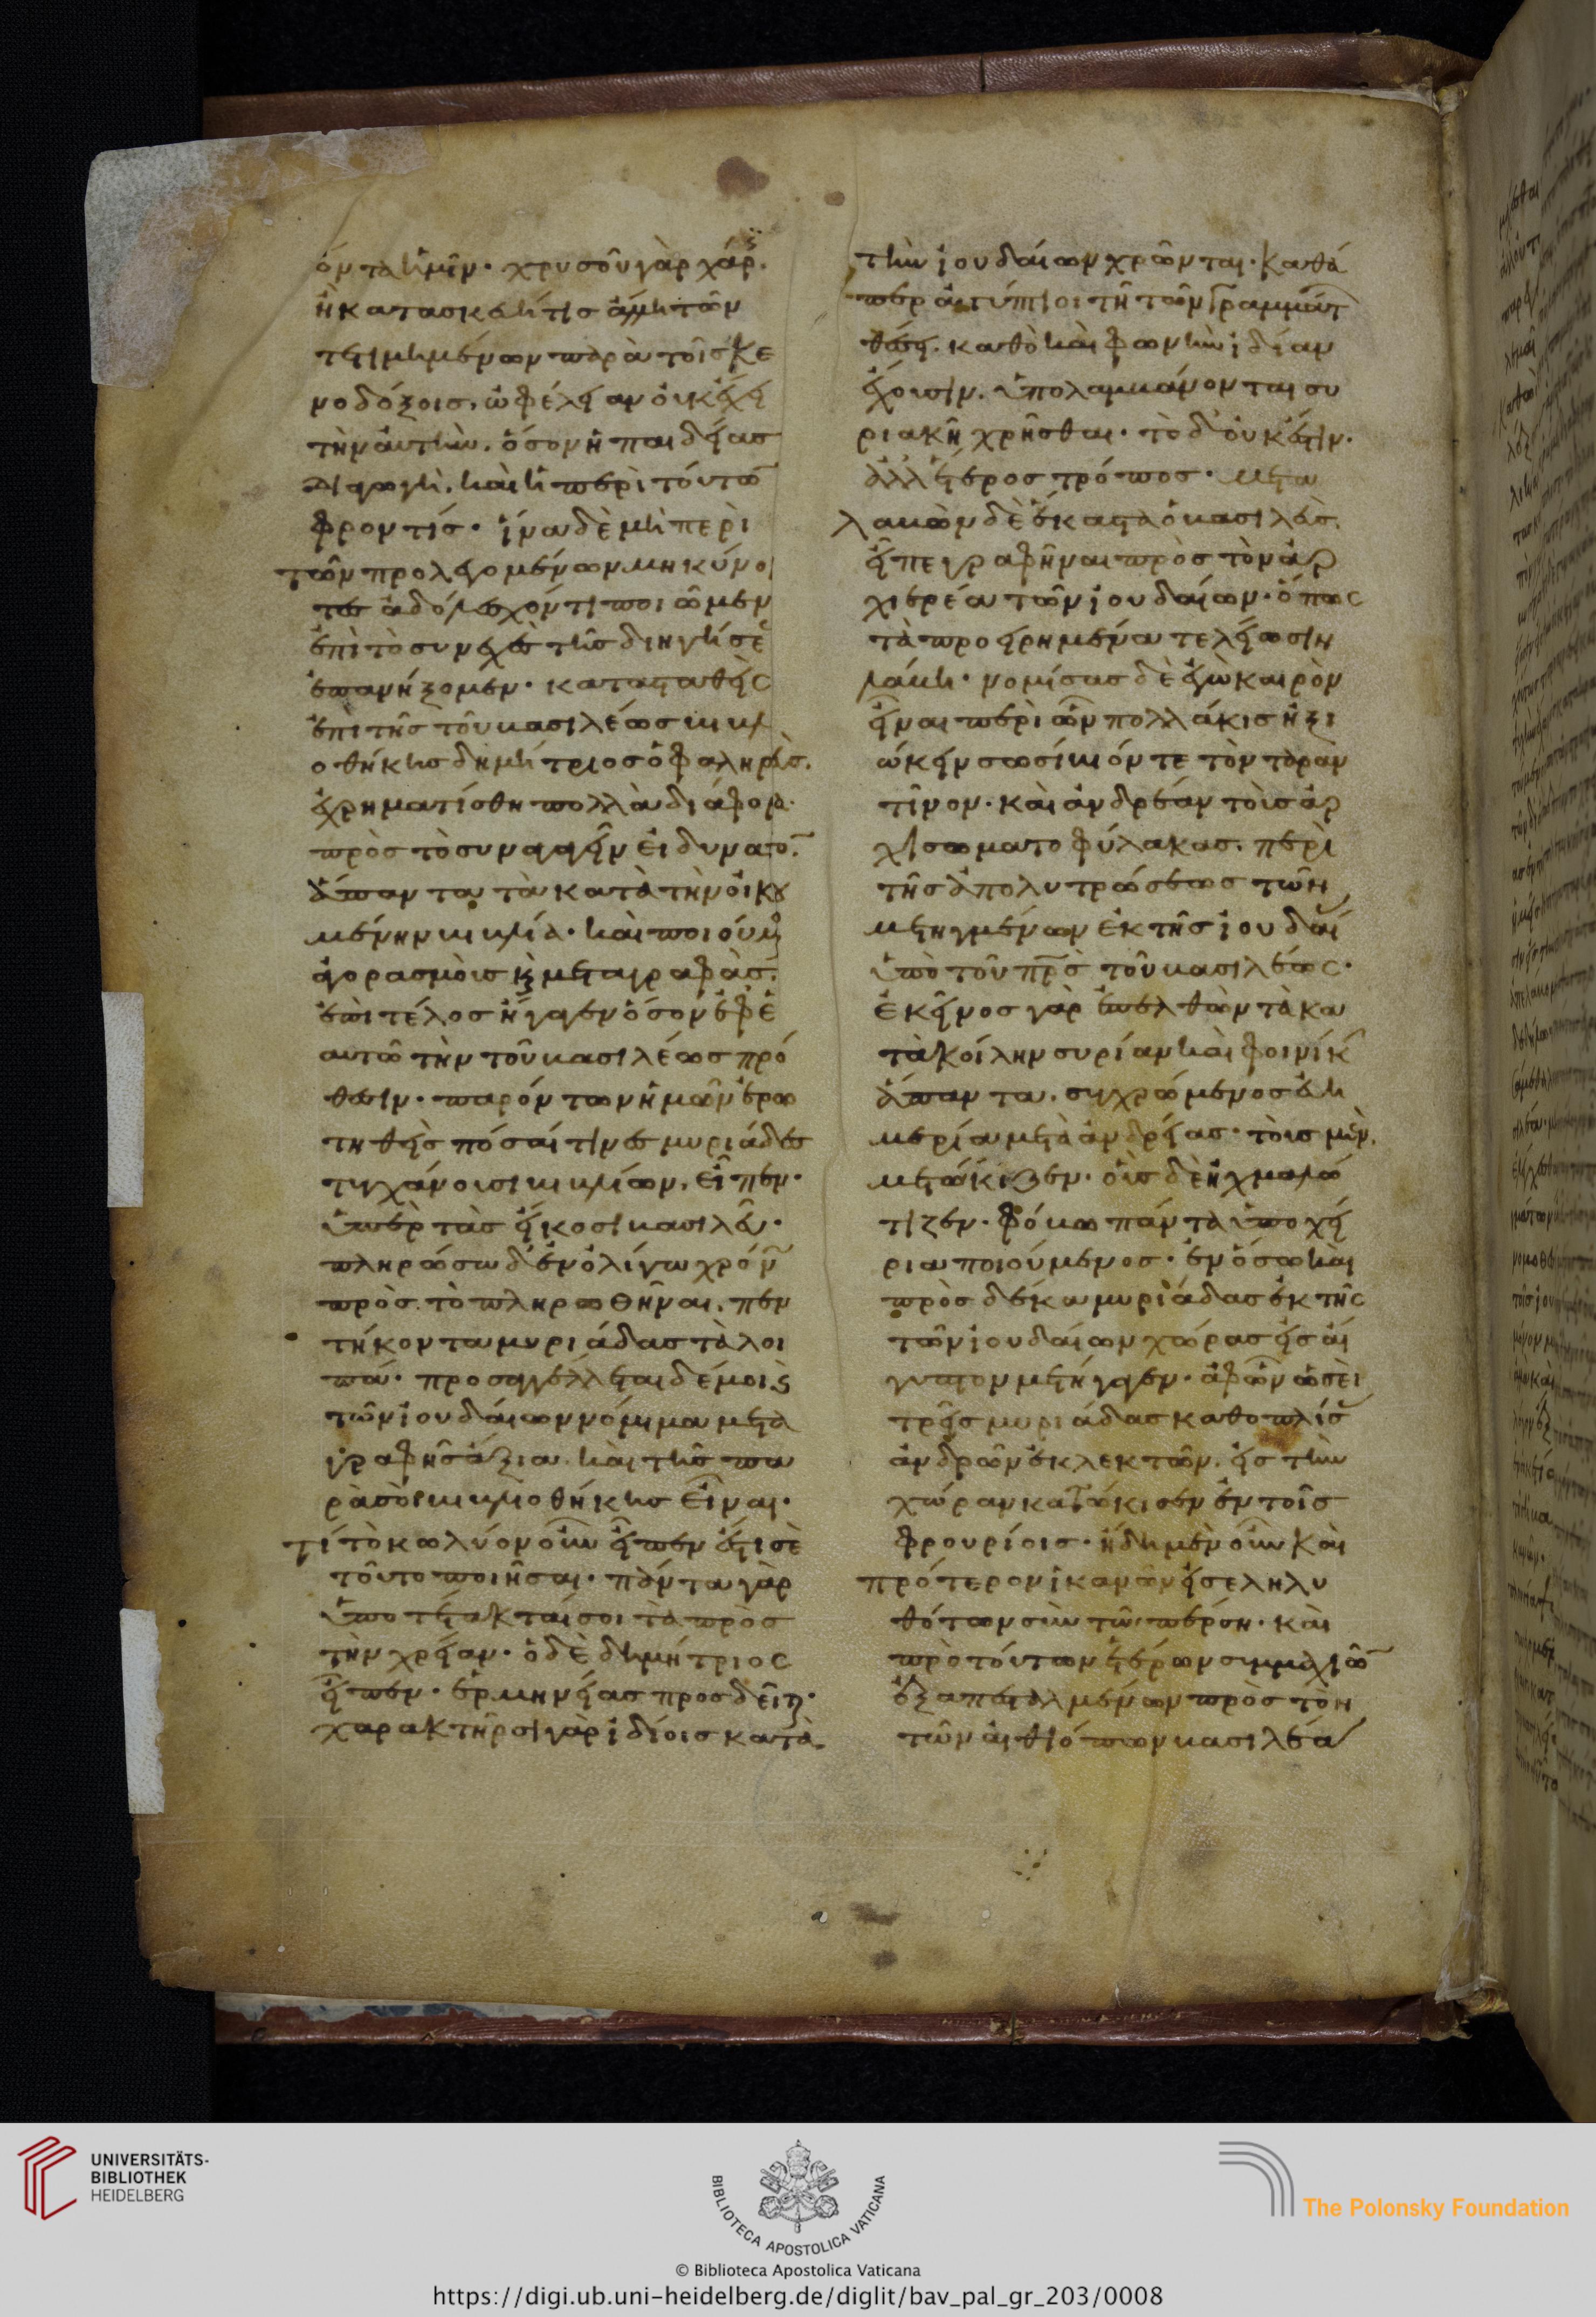 όντα ἡμῖν· χρυσοῦ γὰρ χάρϊς
ἢ κατασκευή τις ἄλλη τῶν
τετιμημένων παρὰ τοῖς κε
νοδόξοις, ὠφέλειαν οὐκ ἔχει
τὴν αὐτὴν, ὅσον ἡ παιδείας
ἀγωγὴ, καὶ ἡ περὶ τούτων
φροντίς· ἵνα δὲ μὴ περὶ
τῶν προλεγομένων μηκύνο
τες ἀδόλεσχόν τι ποιῶμεν
ἐπὶ τὸ συνεχὲς τῆς διηγήσε
ἐπανήξομεν· κατασταθεὶς
ἐπὶ τῆς τοῦ βασιλέως βιβλι
οθήκης δημήτριος ὁ φαληρεὺς.
ἐχρηματίσθη πολλὰ διάφορα·
πρὸς τὸ συναγαγεῖν εἰ δυνατὸν
ἅπαντα τὰ κατὰ τὴν οἰκου
μένην βιβλία· καὶ ποιούμενος
ἀγορασμοὺς καὶ μεταγραφὰς
ἐπὶ τέλος ἤγαγεν ὅσον ἐφ ἑ
αυτῶ τὴν τοῦ βασιλέως πρό
θεσιν· παρόντων ἡμῶν ἐρω
τηθεὶς πόσαι τινες μυριάδες
τυγχάνουσι βιβλίων, εἶπεν·
ὑπὲρ τὰς εἴκοσι βασιλεῦ·
πληρώσω δ' ἐν ὀλίγω χρόνω
πρὸς τὸ πληρωθῆναι, πεν
τήκοντα μυριάδας τὰ λοι
πά· προσαγγέλλεται δέ μοι καὶ
τῶν ἰουδαίων νόμιμα μετα
γραφῆς ἄξια καὶ τῆς πα
ρὰ σοὶ βιβλιοθήκης εἶναι·
τί τὸ κωλύον οὖν εἶπεν ἐστί σε
τοῦτο ποιῆσαι· πάντα γὰρ
ὑποτέτακταί σοι τὰ πρὸς
τὴν χρείαν· ὁ δὲ δημήτριος
εἶπεν· ἑρμηνείας προσδεῖται·
χαρακτῆρσι γὰρ ἰδίοις κατὰ
τὴν ἰουδαίων χρῶνται· καθά
περ αἰγύπτιοι τῆ τῶν γραμμάτων
θέσει. καθὸ καὶ φωνὴν ἰδίαν
ἔχουσιν. ὑπολαμβάνονται συ
ριακῆ χρῆσθαι· τὸ δ' οὐκ ἔστιν.
ἀλλ' ἕτερος τρόπος· μετα
λαβὼν δὲ ἕκαστα ὁ βασιλεὺς.
εἶπε γραφῆναι πρὸς τὸν ἀρ
χιερέα τῶν ἰουδαίων· ὅπως
τὰ προειρημένα τελείωσιν
λάβη· νομίσας δὲ ἐγὼ καιρὸν
εἶναι περὶ ὧν πολλάκις ἠξι
ώκειν σωσίβιόν τε τὸν ταραν
τῖνον· καὶ ἀνδρέαν τοὺς ἀρ
χισωματοφύλακας. περὶ
τῆς ἀπολυτρώσεως τῶν
μετηγμένων ἐκ τῆς ἰουδαί
ὑπὸ τοῦ πρς τοῦ βασιλέως·
ἐκεῖνος γὰρ ἐπελθὼν τὰ κα
τὰ κοίλην συρίαν καὶ φοινίκ
ἅπαντα. συγχρώμενος εὐη
μερία μετὰ ἀνδρείας· τοὺς μὲν.
μετώκιζεν· οὓς δὲ ἠχμαλώ
τιζεν· φόβω πάντα ὑποχεί
ρια ποιούμενος· ἐν ὅσω καὶ
πρὸς δέκα μυριάδας ἐκ τῆς
τῶν ἰουδαίων χώρας εἰς αἴ
γυπτον μετήγαγεν· ἀφ ὧν ὡσεὶ
τρεῖς μυριάδας καθοπλίσ
ἀνδρῶν ἐκλεκτῶν. εἰς τὴν
χώραν κατώκισεν ἐν τοῖς
φρουρίοις· ἤδη μὲν οὖν καὶ
πρότερον ἱκανῶν εἰσεληλυ
θότων σὺν τῶ πέρση· καὶ
πρὸ τούτων ἑτέρων συμμαχιῶν
ἐξαπεσταλμένων πρὸς τὸν
τῶν αἰθιόπων βασιλέα
UNIVERSITÄTS-
BIBLIOTHEK
HEIDELBERG
BIBLIOTECA APOSTOLICA VATICANA
The Polonsky Foundation
© Biblioteca Apostolica Vaticana
https://digi.ub.uni-heidelberg.de/diglit/bav_pal_gr_203/0008